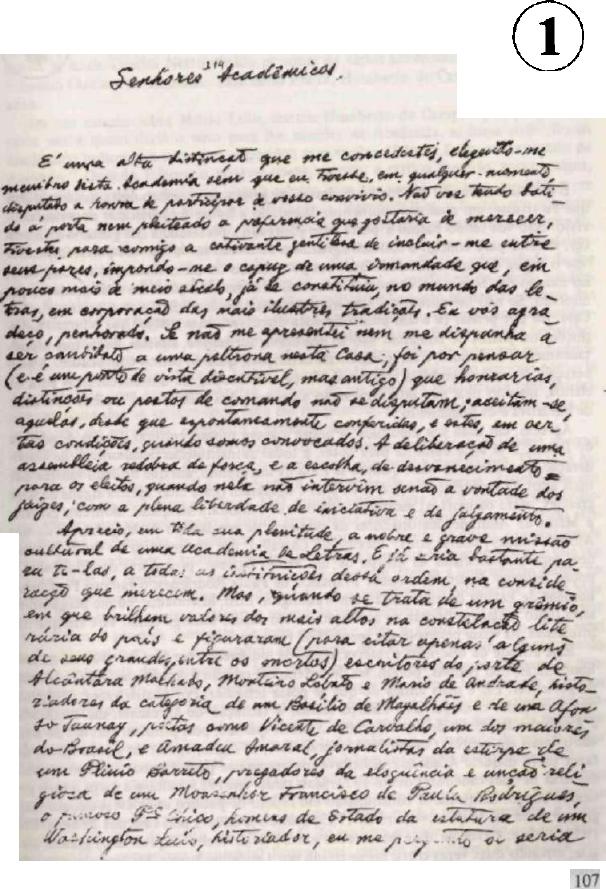 1
Senhores Acadêmicos.
É uma alta distinção que me concedestes, elegendo-me
membro desta Academia sem que eu tivesse, em qualquer momento,
disputado a honra de participar de vosso convívio. Não vos tendo bati-
do à porta nem pleiteado a preferência que gostaria de merecer,
tivestes para comigo a cativante gentileza de incluir-me entre
seus pares, impondo-me o capuz de uma irmandade que, em
pouco mais de meio século, já se constituiu, no mundo das le-
tras, em corporação das mais ilustres tradições. Eu vós agra-
deço, penhorado. Se não me apresentei nem me dispunha a
ser candidato a uma poltrona nesta Casa, foi por pensar
(e é um ponto de vista discutível, mas antigo) que honrarias,
distinções ou postos de comando não se disputam; aceitam-se,
aquelas, desde que espontaneamente conferidas, e estes, em cer-
tas condições, quando somos convocados. A deliberação de uma
assembléia redobra de força, e a escolha, de desvanecimento
para os eleitos, quando nela não intervim senão a vontade dos
juízes, com a plena liberdade de iniciativa e de julgamento.
Aprecio, em toda sua plenitude, a nobre e grave missão
cultural de uma Academia de Letras. E já seria bastante pa-
ra tê-las, a todas as instituições dessa ordem, na conside-
ração que merecem. Mas, quando se trata de um grêmio,
em que brilham valores dos mais altos na constelação lite-
rária do país e figuraram (para citar apenas alguns
de seus grandes, entre os mortos) escritores do porte de
Alcântara Machado, Monteiro Lobato e Mario de Andrade, histo-
riadores da categoria de um Basilio de Magalhães e de um Afon-
so Taunay, poetas como Vicente de Carvalho, um dos maiores
do Brasil, e Amadeu Amaral, jornalistas da estirpe de
um Plinio Barreto, pregadores da eloquência e unção reli-
giosa de um Monsenhor Francisco de Paula Rodrigues,
o Pe Chico, homens de Estado da estatura de um
Washington Luís, historiador, eu me pergunto se seria
107